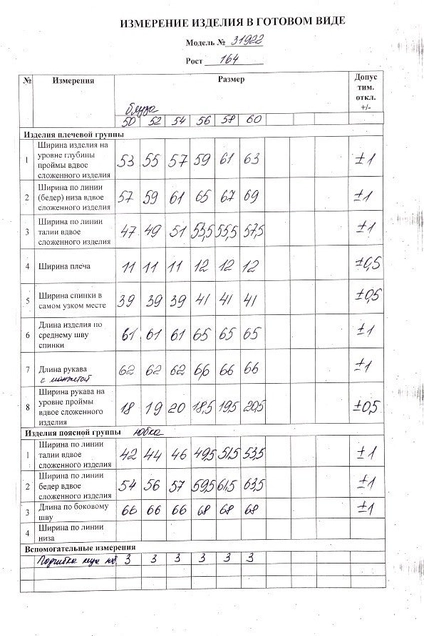 ИЗМЕРЕНИЕ ИЗДЕЛИЯ В ГОТОВОМ ВИДЕ
Модель № 31922
Рост 164
№ Измерения Размер Допус тим. откл. +/-
блуза
50 52 54 56 58 60
Изделия плечевой группы
1 Ширина изделия на уровне глубины проймы вдвое сложенного изделия 53 55 57 59 61 63 ±1
2 Ширина по линии (бедер) низа вдвое сложенного изделия 57 59 61 65 67 69 ±1
3 Ширина по линии талии вдвое сложенного изделия 47 49 51 53,5 55,5 57,5 ±1
4 Ширина плеча 11 11 11 12 12 12 ±0,5
5 Ширина спинки в самом узком месте 39 39 39 41 41 41 ±0,5
6 Длина изделия по среднему шву спинки 61 61 61 65 65 65 ±1
7 Длина рукава с манжетой 62 62 62 66 66 66 ±1
8 Ширина рукава на уровне проймы вдвое сложенного изделия 18 19 20 18,5 19,5 20,5 ±0,5
Изделия поясной группы юбка
1 Ширина по линии талии вдвое сложенного изделия 42 44 46 49,5 51,5 53,5 ±1
2 Ширина по линии бедер вдвое сложенного изделия 54 56 57 59,5 61,5 63,5 ±1
3 Длина по боковому шву 66 66 66 68 68 68 ±1
4 Ширина по линии низа
Вспомогательные измерения
3 3 3 3 3 3